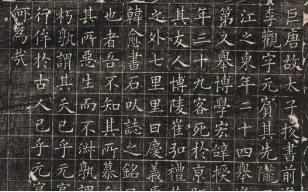 巨唐故太子校書前
李觀字元賓其先隴
江之東年二十四舉
第又舉博學宏辭授
年三十九客死於京
其友人博陵崔弘禮
之外七里里曰慶義
韓愈書石以誌之銘曰
也者吾不知其所慕
其所惡生而不淋孰謂
朽孰謂其夭已乎元
行侔於古人已乎元賓
何為哉